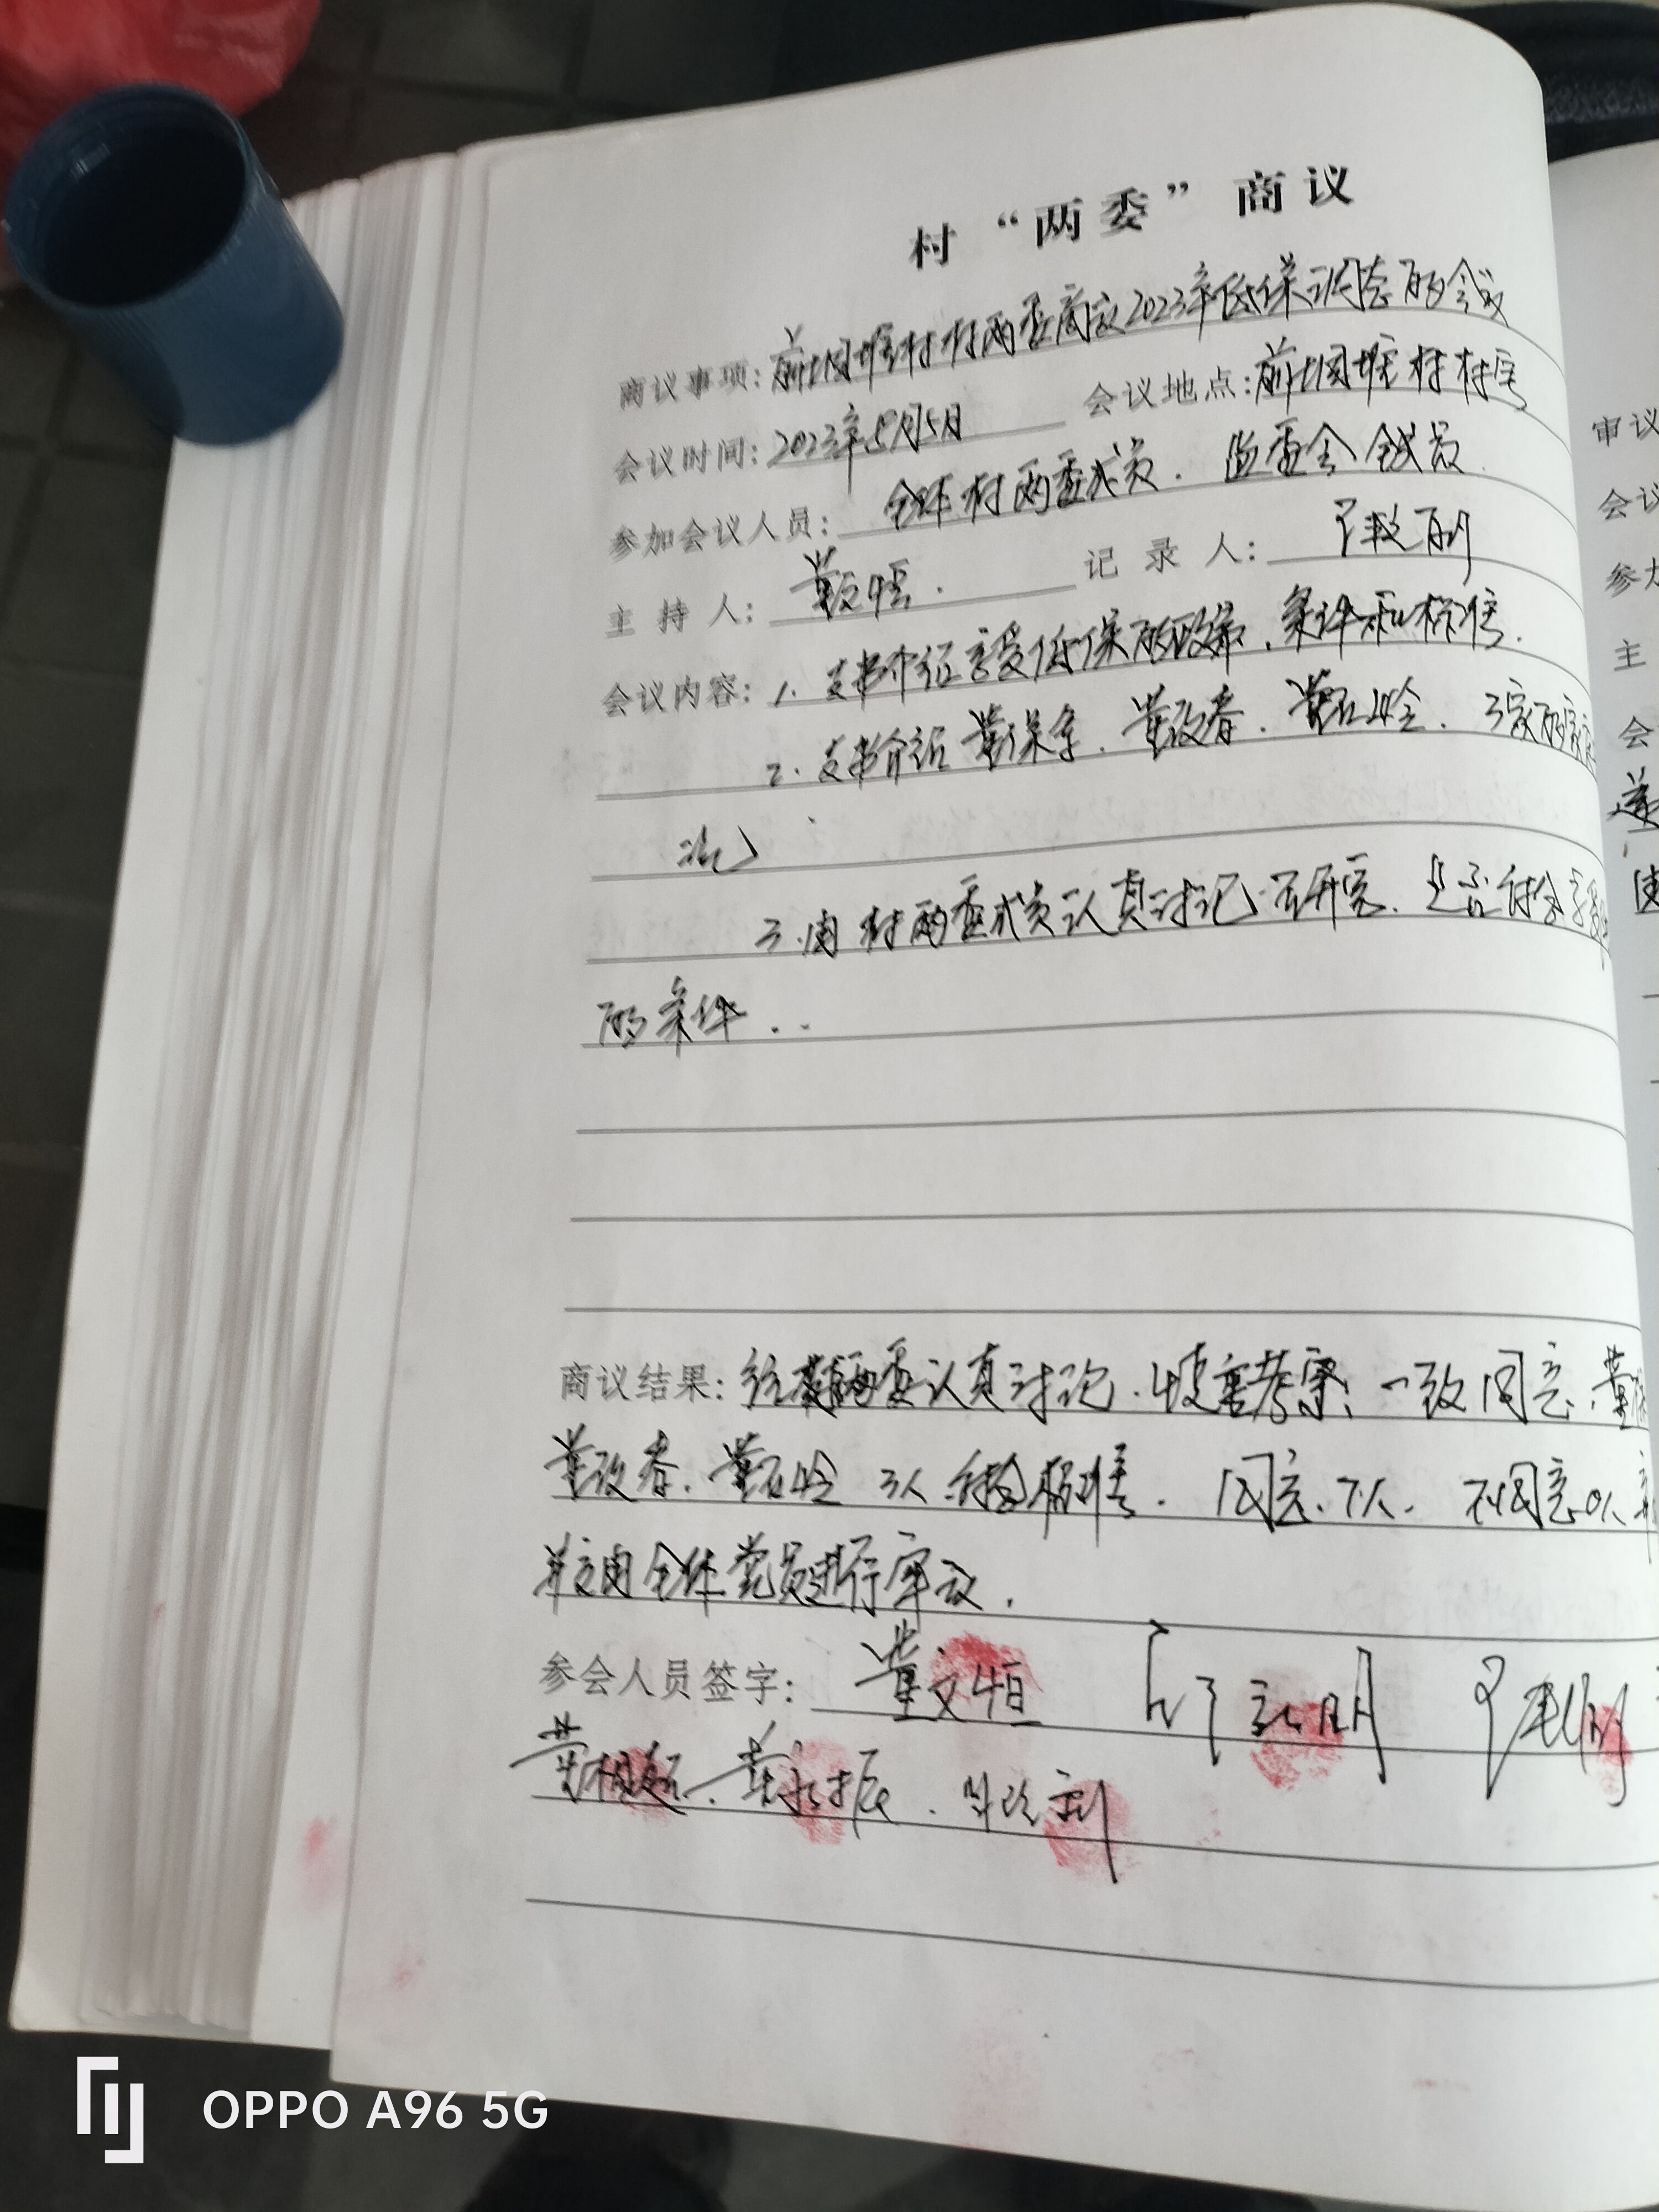 村“两委”商议
商议事项：前堌堆村村两委商议2023年低保调整的会议
会议时间：2023年5月5日 会议地点：前堌堆村村室
参加会议人员：全体村两委成员．监委会全成员
主持人：董文恒． 记录人：
会议内容：1．支书介绍享受低保的政策．条件和标准．
2．支书介绍董保全．董改春．董石岭．3家的家庭
况
3．由村两委成员认真讨论．研究．是否符合享受
的条件．．
商议结果：经村两委认真讨论．慎重考察．一致同意．董
董改春．董石岭 3人符合标准． 同意7人． 不同意0人
并交由全体党员进行审议．
参会人员签字：董文恒
审议
会议
参加
主
会
OPPO A96 5G